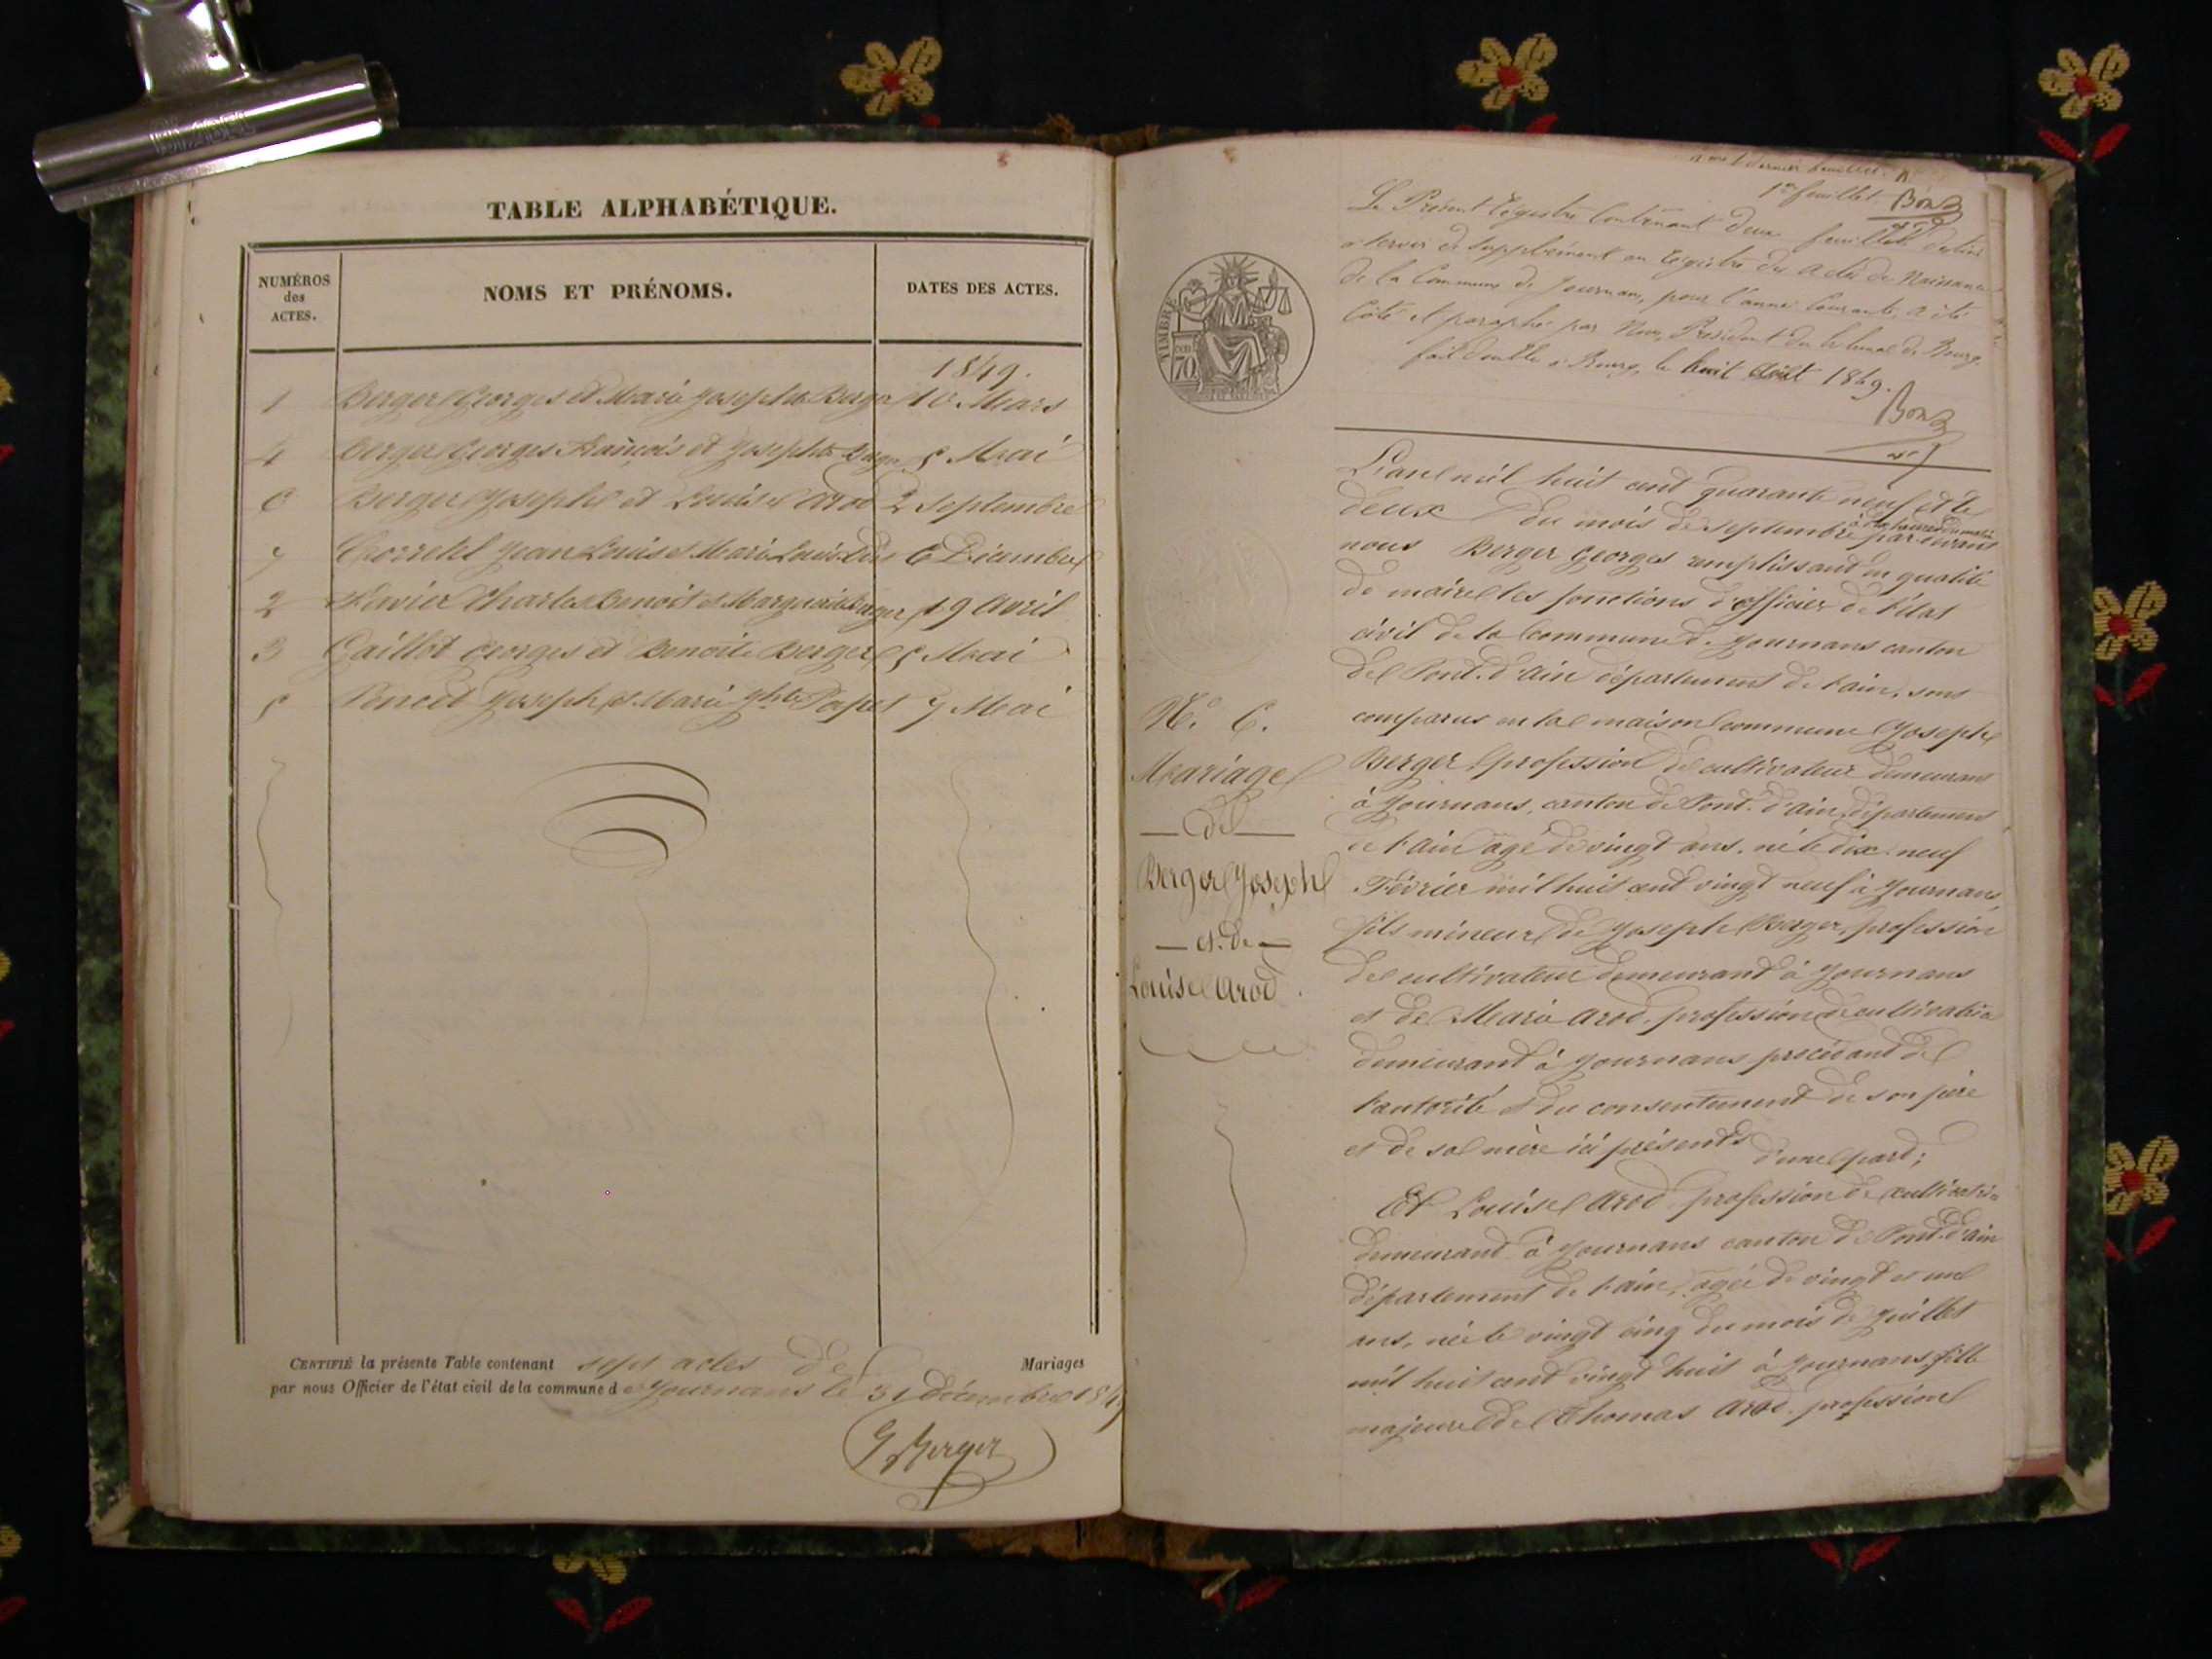 TABLE ALPHABÉTIQUE.
NUMÉROS des ACTES.
NOMS ET PRÉNOMS.
DATES DES ACTES.
1849.
1 Berger Georges et Marie Josephte Berger 10 Mars
4 Berger Georges François et Josephte Berger 5 Mai
6 Berger Joseph et Louise Arod 2 Septembre
7 Jean Louis et Marie Louise 6 Décembre
2 Charles Benoit et Marguerite Berger 19 Avril
3 Gaillot Georges et Benoite Berger 5 Mai
5 Poncet Joseph et Marie Papet 7 Mai
CERTIFIÉ la présente Table contenant sept actes de Mariages
par nous Officier de l'état civil de la commune de Journans le 31 décembre 1849
G Berger
dernier feuillet
1er feuillet
Le Présent Régistre Contenant deux feuillets destiné
à servir de Supplément au Régistre des Actes de Naissance
de la Commune de Journans, pour l'année Courante, a été
Côté et paraphé par Nous, Président du tribunal de Bourg.
fait double à Bourg, le huit Août 1849.
TIMBRE
70
L'an mil huit cent quarante neuf et le
deux du mois de septembre à heures du matin par devant
nous Berger Georges remplissant en qualité
de maire les fonctions d'officier de l'état
civil de la commune de Journans canton
de Pont-d'ain département de l'ain, sont
comparus en la maison commune Joseph
N.o 6.
Mariage
de
Berger Joseph
et de
Louise Arod.
Berger, profession de cultivateur demeurant
à Journans, canton de Pont-d'ain, département
de l'ain agé de vingt ans, né le dix-neuf
Février mil huit cent vingt neuf à Journans,
fils mineur de Joseph Berger, profession
de cultivateur demeurant à Journans
et de Marie Arod, profession de cultivatrice
demeurant à Journans procédant de
l'autorité et du consentement de son père
et de sa mère ici présents d'une part;
Et Louise Arod profession de cultivatrice
demeurant à Journans canton de Pont-d'ain
département de l'ain, agée de vingt et un
ans, née le vingt cinq du mois de Juillet
mil huit cent vingt huit à Journans, fille
majeure de Thomas Arod, profession